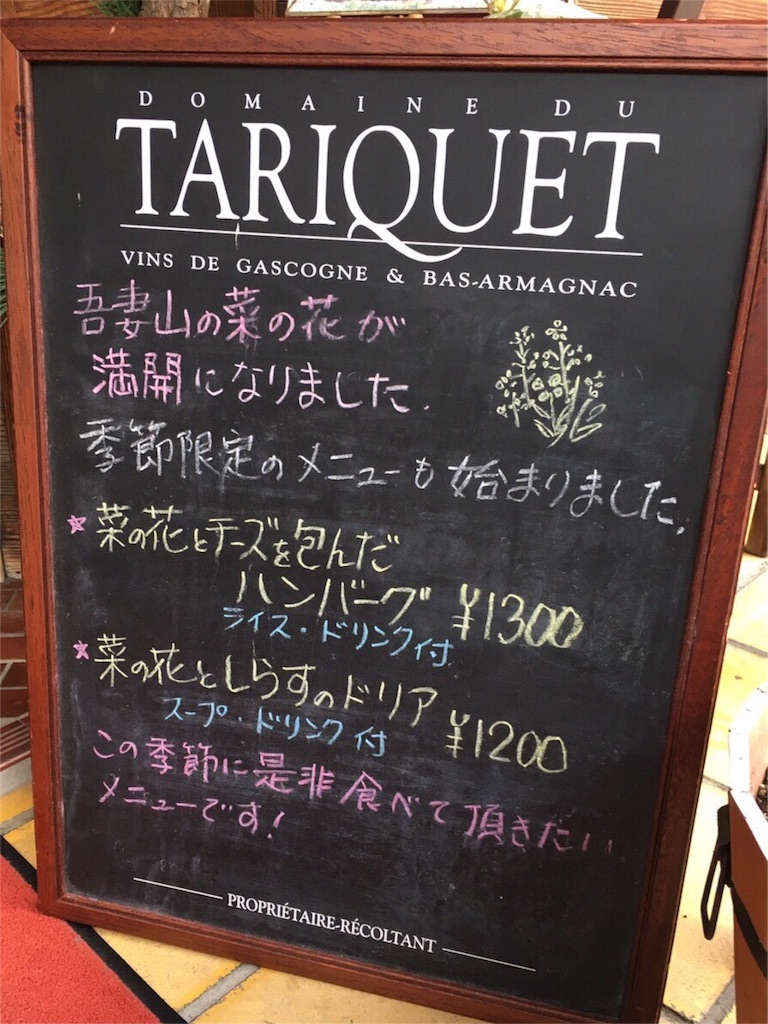 DOMAINE DU
TARIQUET
VINS DE GASCOGNE & BAS-ARMAGNAC
吾妻山の菜の花が
満開になりました.
季節限定のメニューも始まりました.
☆菜の花とチーズを包んだ
ハンバーグ ¥1300
ライス・ドリンク付
☆菜の花としらすのドリア
スープ・ドリンク付 ¥1200
この季節に是非食べて頂きたい
メニューです!
PROPRIÉTAIRE-RÉCOLTANT